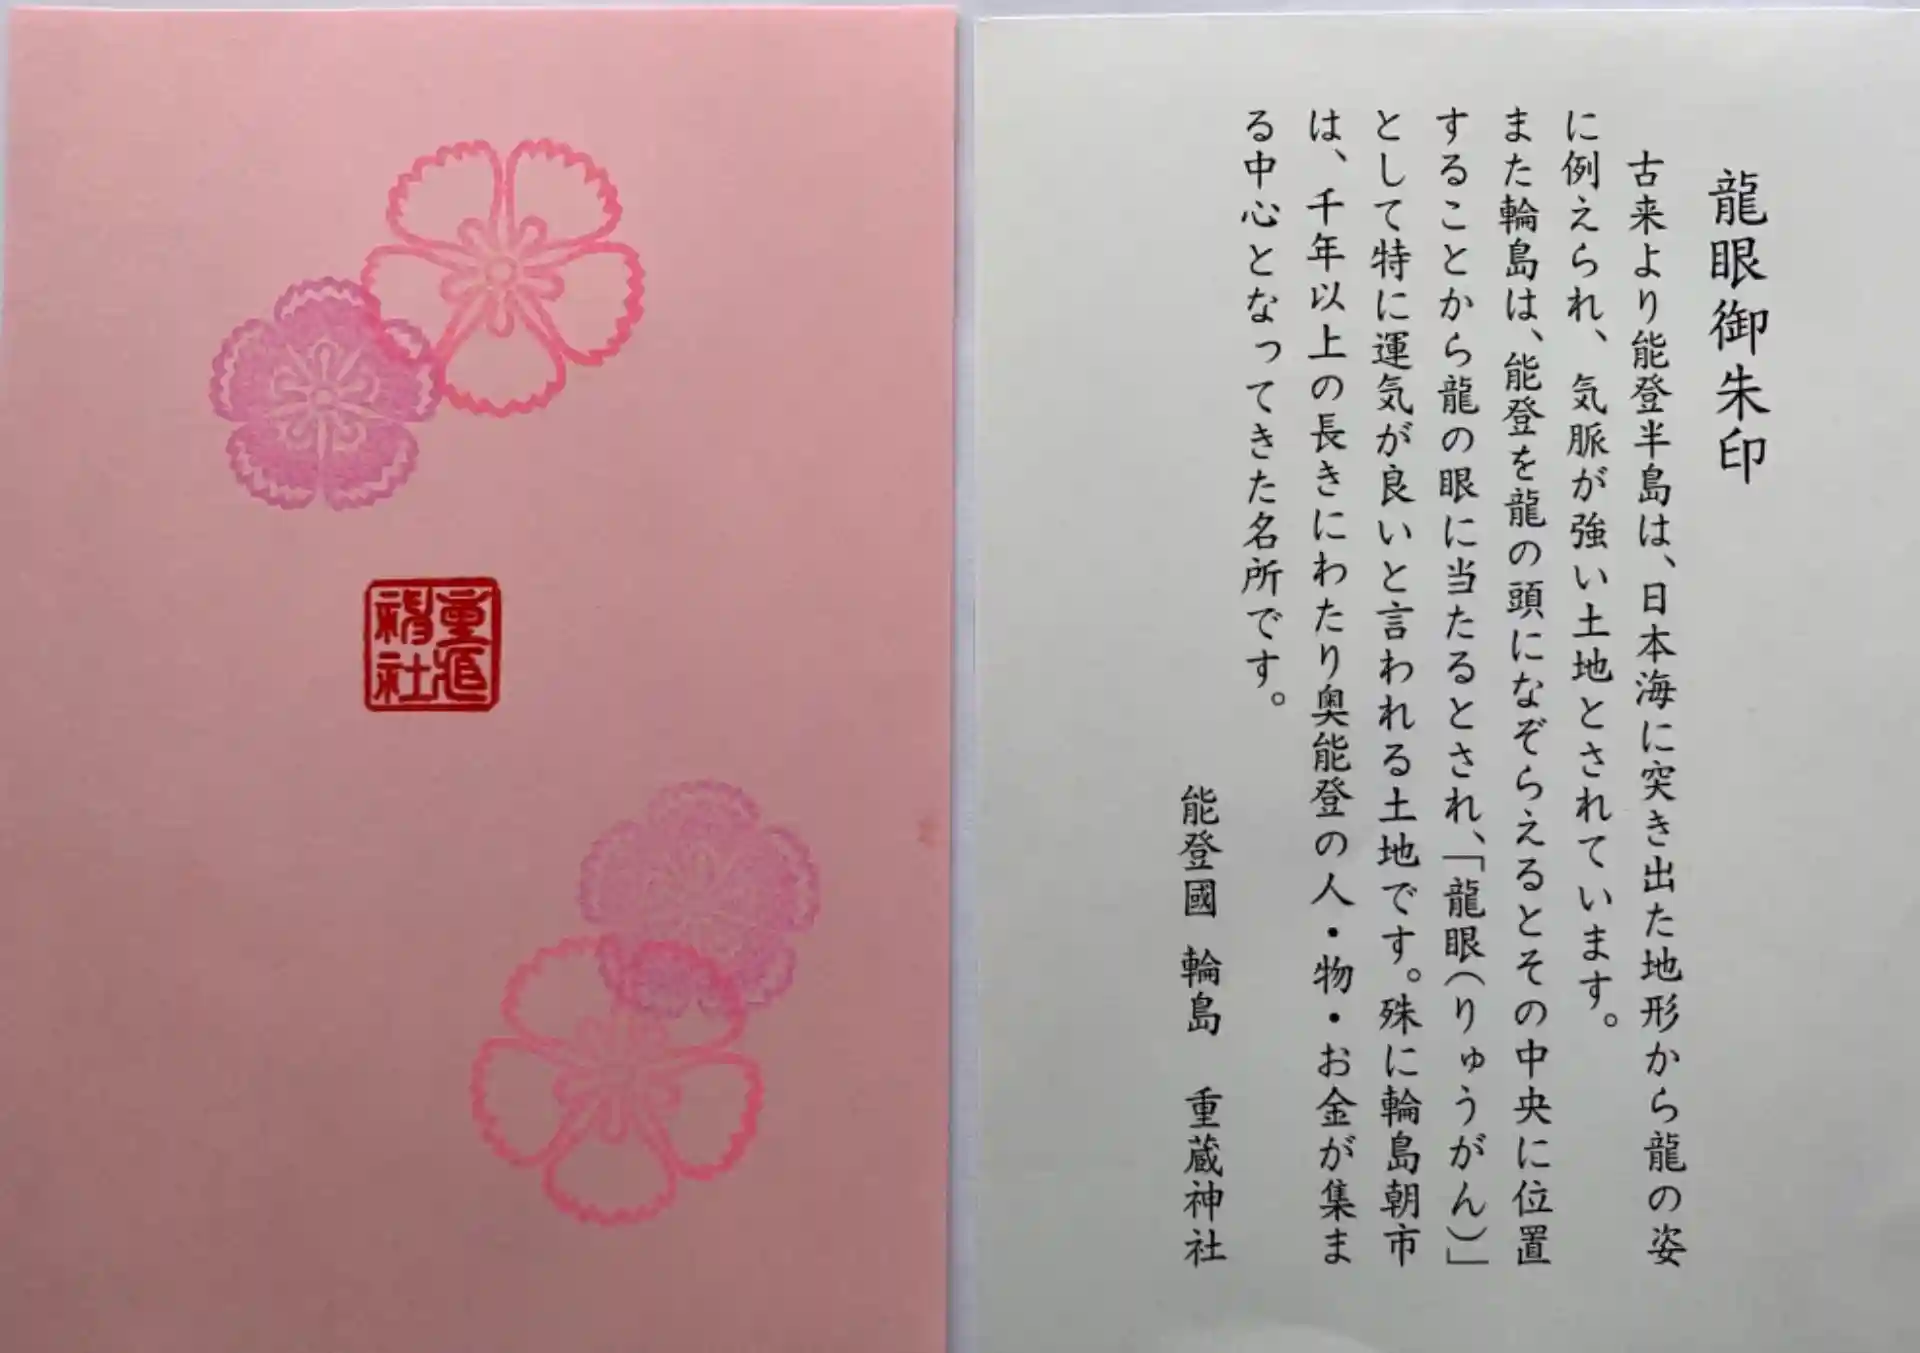 重蔵
神社
龍眼御朱印
古来より能登半島は、日本海に突き出た地形から龍の姿
に例えられ、気脈が強い土地とされています。
また輪島は、能登を龍の頭になぞらえるとその中央に位置
することから龍の眼に当たるとされ、「龍眼(りゅうがん)」
として特に運気が良いと言われる土地です。殊に輪島朝市
は、千年以上の長きにわたり奥能登の人・物・お金が集ま
る中心となってきた名所です。
能登國 輪島 重蔵神社